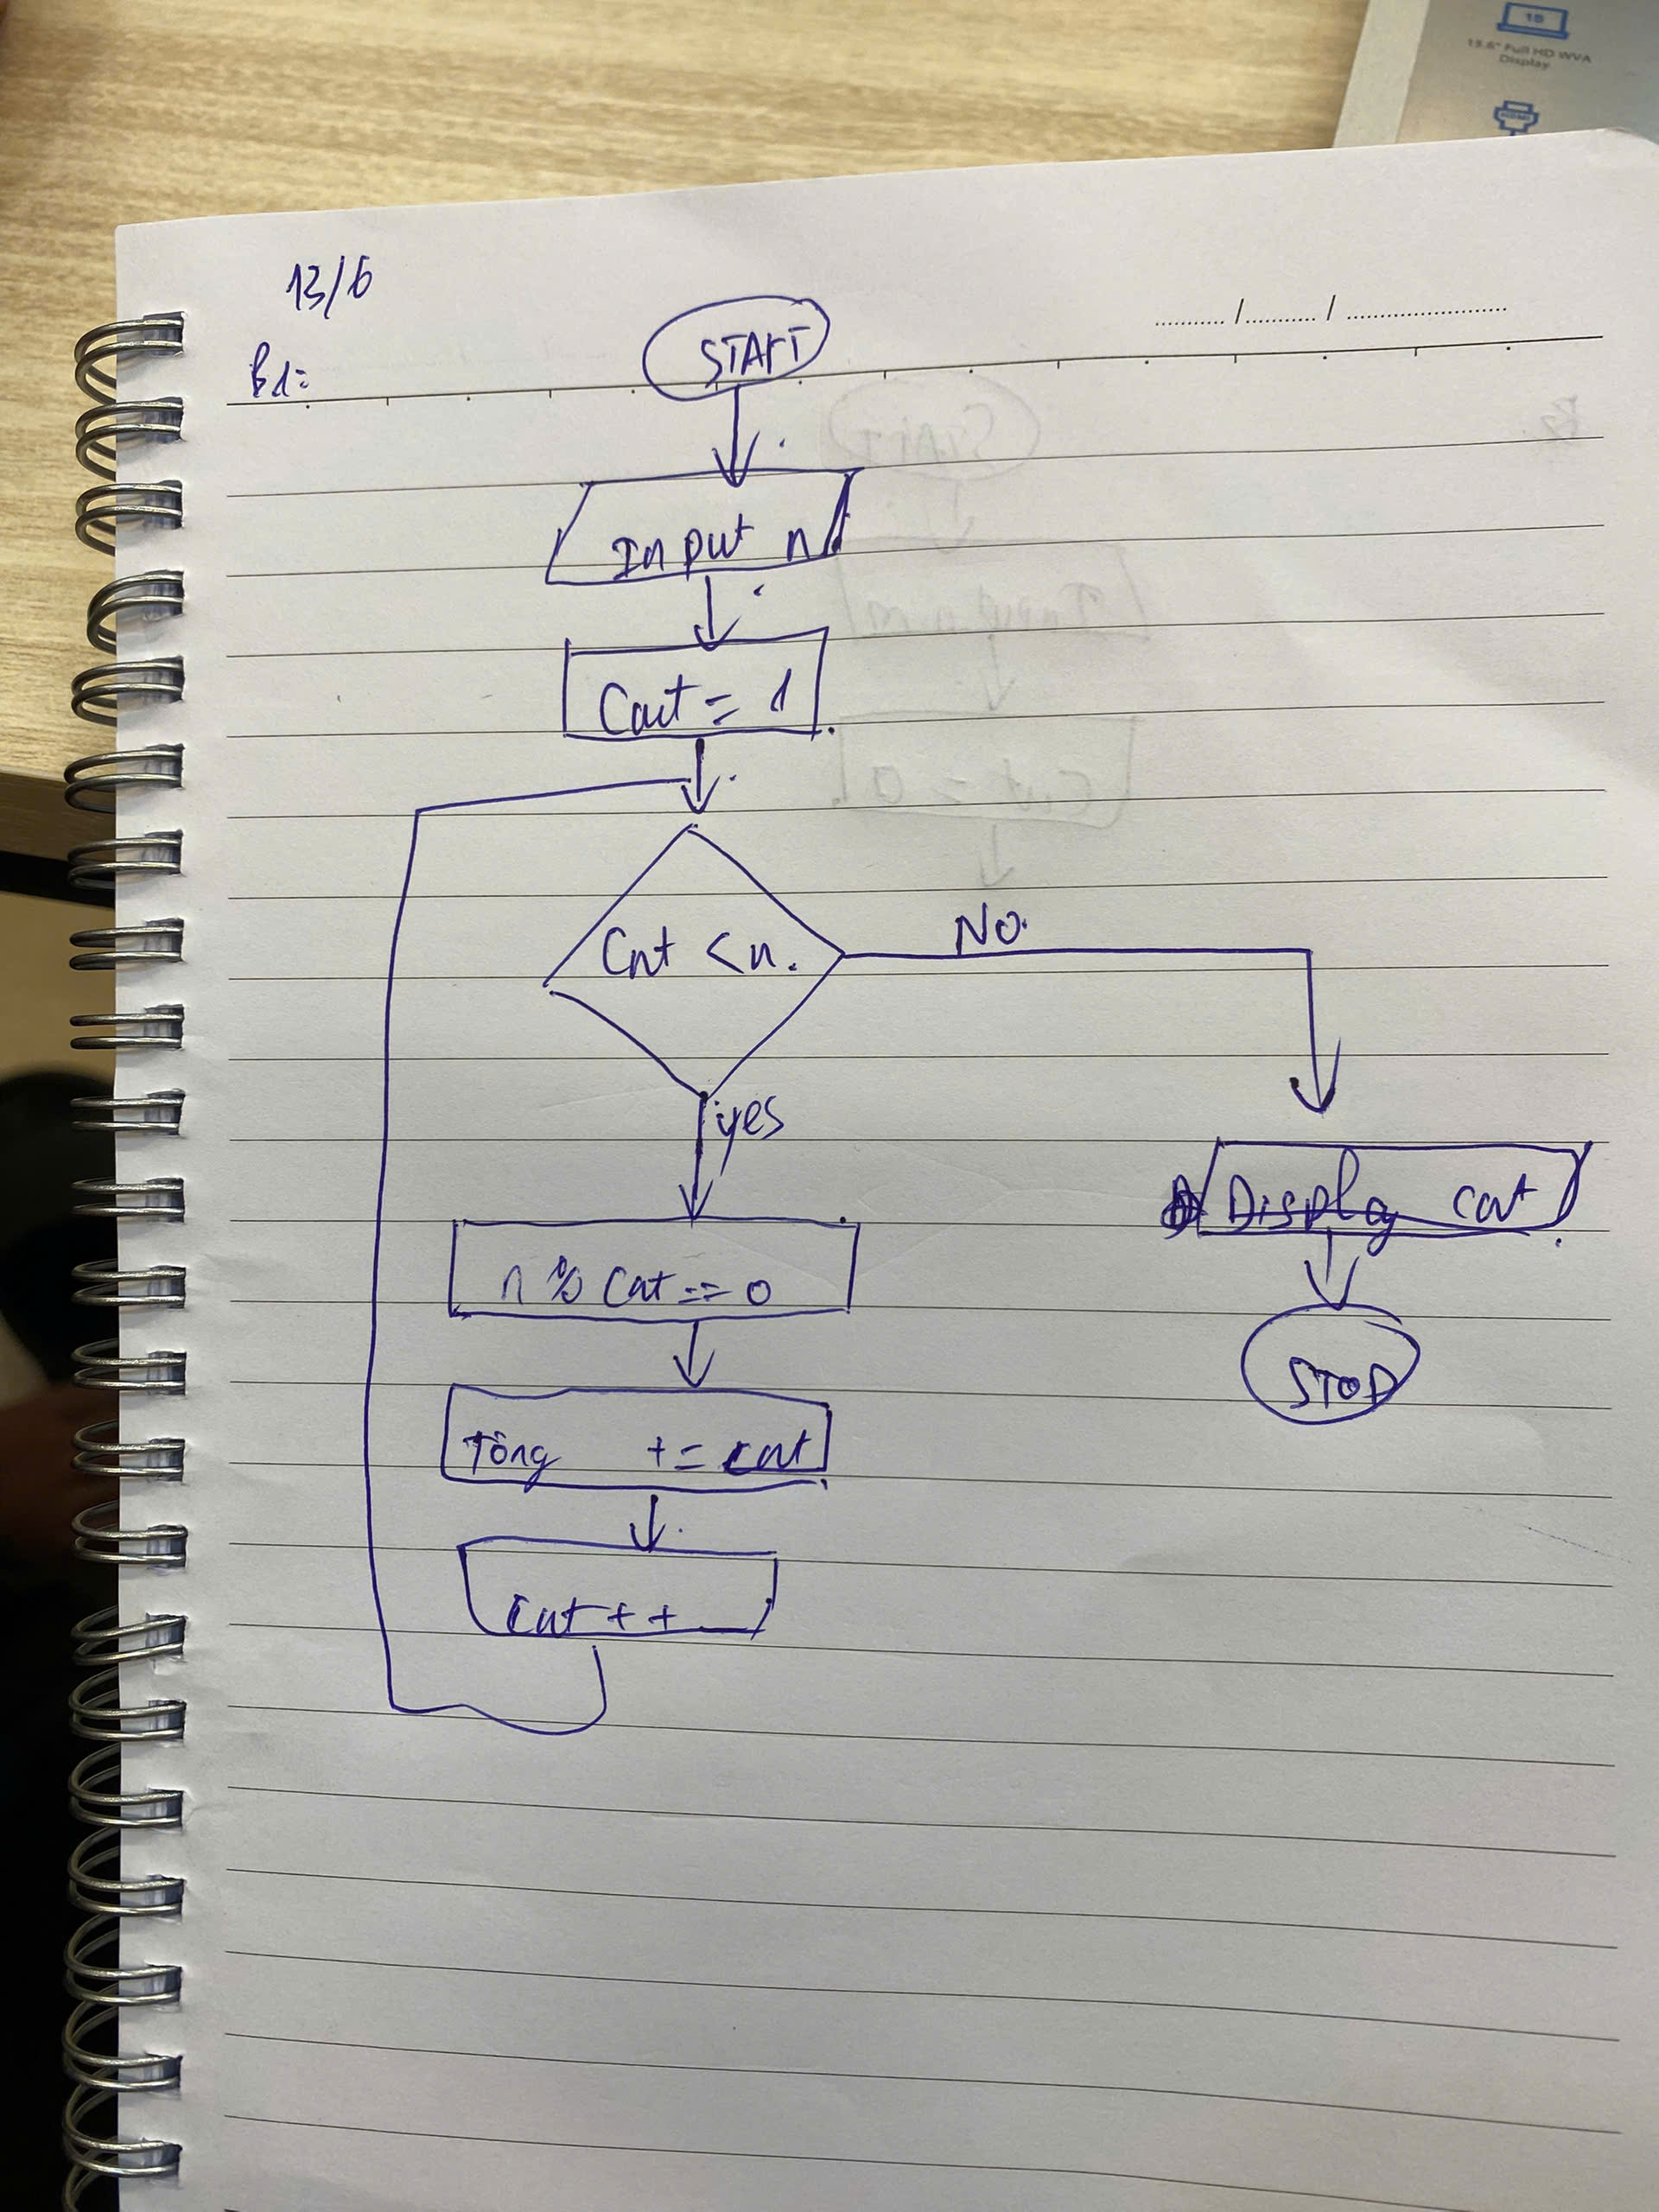 15
15.6" Full HD WVA
Display
HDMI
13/6
B1:
........... /........... / .......................
START
Input n
Cnt = 1
Cnt < n.
No.
yes
n % Cnt == 0
Tổng += cnt
Cnt ++
Display cnt
STOP